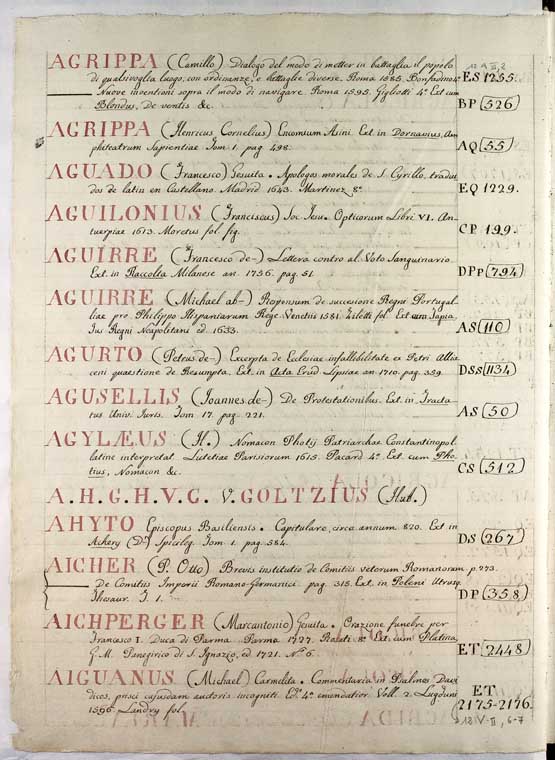 AGRIPPA (Camillo) Dialogo del modo di metter in battaglia il popolo 12 A II, 2
di qualsivoglia luogo, con ordinanze, e battaglie diverse. Roma 1585. Bonfadino 4º ES 1255.
Nuove inventioni sopra il modo di navigare. Roma 1595. Gigliotti 4º Ext cum
Blondus, De ventis &c. BP 526
AGRIPPA (Henricus Cornelius) Encomium Asini. Ext. in Dornavius, Am
phiteatrum Sapientiae Tom 1. pag 498. AQ 55
AGUADO (Francesco) Gesuita. Apologos morales de S. Cyrillo, tradu
dos de latin en Castellano. Madrid 1643. Martinez 8º EQ 1229.
AGUILONIUS (Franciscus) Soc. Iesu. Opticorum Libri VI. An
tuerpiae 1613. Moretus fol. fig. CP 199.
AGUIRRE (Francesco de-) Lettera contro al Voto Sanguinario
Ext. in Raccolta Milanese an. 1756. pag. 51. DPP 794
AGUIRRE (Michael ab-) Responsum de succesione Regni Portugal
liae pro Philippo Hispaniarum Rege. Venetiis 1581. Ziletti fol. Ext cum Tapia
Ius Regni Neapolitani ed. 1633. AS 110
AGURTO (Petrus de-) Excerpta de Ecclesiae infallibilitate ex Petri Allia
ceni quaestione de Resumpta. Ext. in Acta Erud Lipsiae an 1710. pag. 359. DSS 1134
AGUSELLIS (Ioannes de-) De Protestationibus. Ext. in Tracta
tus Univ. Iuris. Tom 17. pag 221. AS 50
AGYLÆUS (H.) Nomocan Photij Patriarchae Constantinopol.
latine interpretat. Lutetiae Parisiorum 1615. Pacard 4º Ext. cum Pho
tius, Nomocan &c. CS 512
A.H.G.H.V.G. V. GOLTZIUS (Hub.)
AHYTO Episcopus Basiliensis. Capitulare, circa annum 820. Ext in
Achery (D') Spicileg. Tom 1. pag. 584. DS 267
AICHER (P. Otto) Brevis institutio de Comitiis veterum Romanorum p. 273.
De Comitiis Imperii Romano-Germanici. pag. 315. Ext. in Poleni Utriusq.
Thesaur. T. 1. DP 358
AICHPERGER (Marcantonio) Gesuita. Orazione funebre per
Francesco I. Duca di Parma. Parma 1727. Rosati 8º Ext. cum Platina
G. M. Panegirico di S. Ignazio, ed 1721. Nº 6. ET 2448
AIGUANUS (Michael) Carmelita. Commentaria in Psalmos Davi
dicos, prisci cujusdam auctoris incogniti. Ed. 4º emendatior. Voll. 2. Lugduni ET
1596. Landry fol. 2175-2176.
12 V-II, 6-7